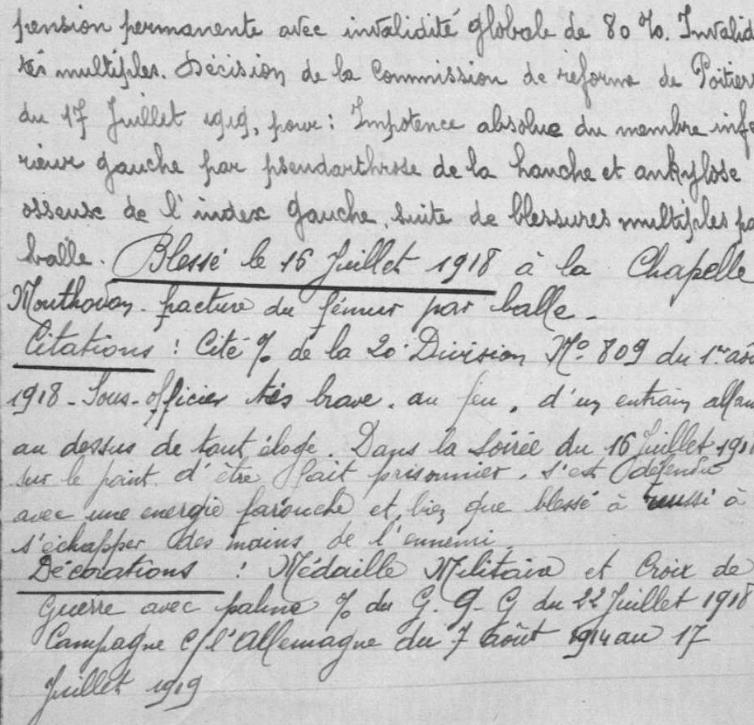 pension permanente avec invalidité globale de 80 %. Invalid
tés multiples. Décision de la Commission de réforme de Poitiers
du 17 Juillet 1919, pour : Impotence absolue du membre infé
rieur gauche par pseudarthrose de la hanche et ankylose
osseuse de l'index gauche, suite de blessures multiples pa
balle. Blessé le 16 Juillet 1918 à la Chapelle
Monthodon. facture du fémur par balle.
Citations : Cité % de la 20e Division No 809 du 1er aoû
1918 - Sous-officier très brave. au feu, d'un entrain allan
au dessus de tout éloge. Dans la soirée du 16 Juillet 1918
sur le point d'être fait prisonnier, s'est défendu
avec une energie farouche et, bien que blessé à réussi à
s'échapper des mains de l'ennemi
Décorations : Médaille Militaire et Croix de
Guerre avec palme % du G. Q. G du 22 Juillet 1918
Campagne c/ l'Allemagne du 7 août 1914 au 17
Juillet 1919